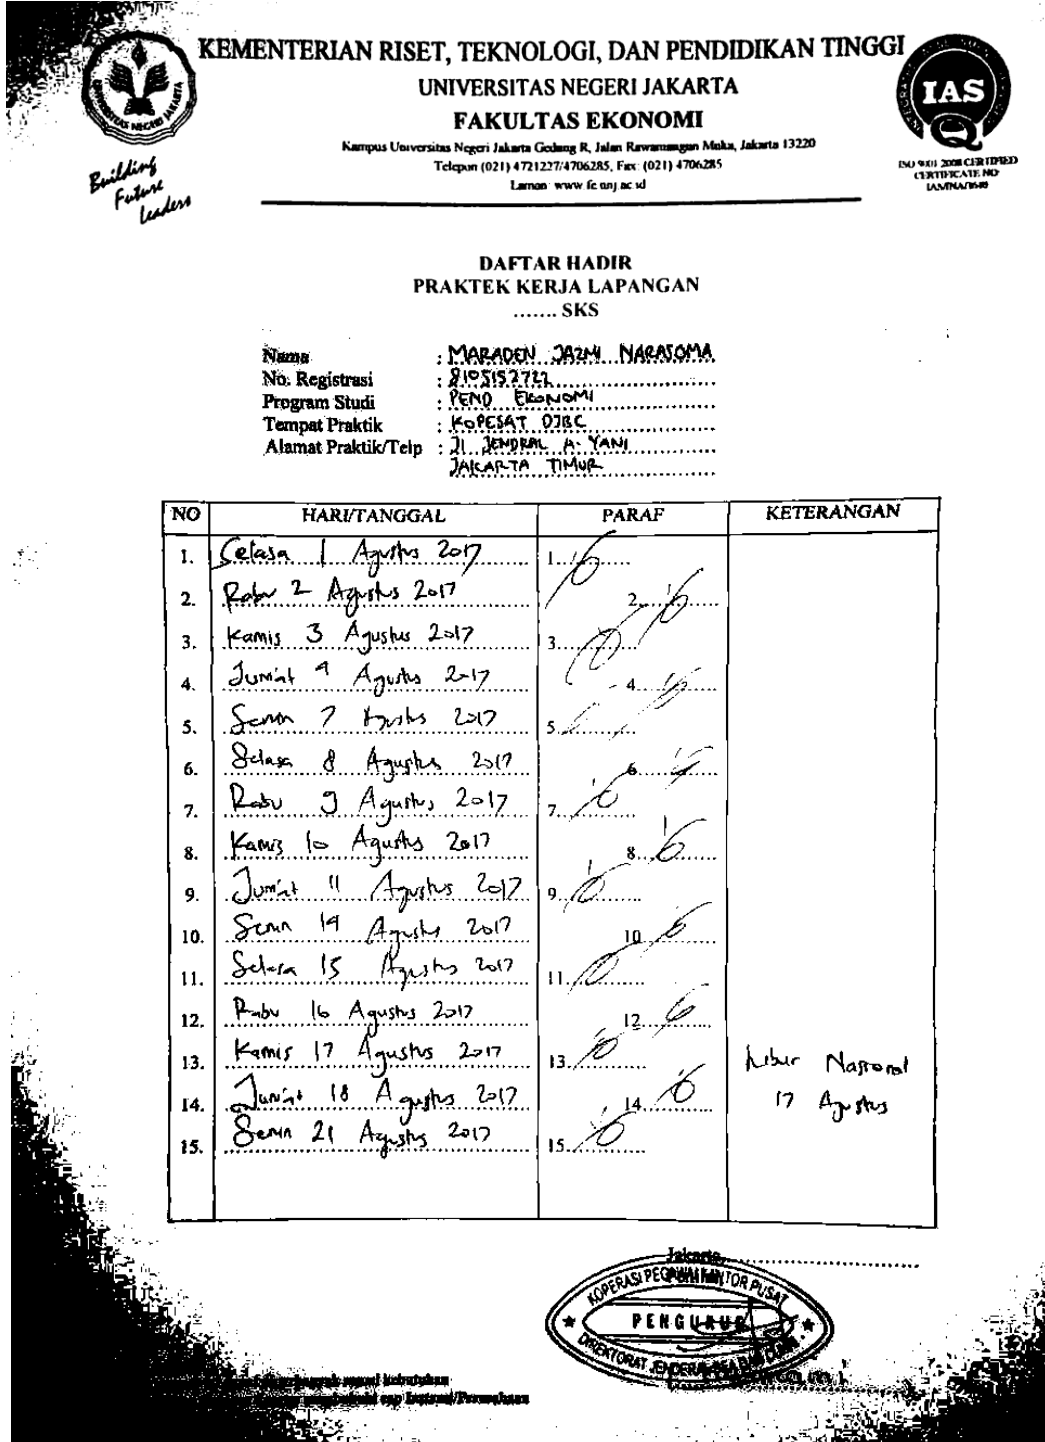 KEMENTERIAN RISET, TEKNOLOGI, DAN PENDIDIKAN TINGGI
UNIVERSITAS NEGERI JAKARTA
FAKULTAS EKONOMI
Kampus Universitas Negeri Jakarta Gedung R, Jalan Rawamangun Muka, Jakarta 13220
Telepon (021) 4721227/4706285, Fax: (021) 4706285
Laman: www.fe.unj.ac.id
UNIVERSITAS NEGERI JAKARTA
Building
Future
Leaders
IAS
ISO 9001 2008 CERTIFIED
CERTIFICATE NO
DAFTAR HADIR
PRAKTEK KERJA LAPANGAN
....... SKS
Nama : MARADEN JAZMI NARASOMA
No. Registrasi : 8105152722
Program Studi : PEND EKONOMI
Tempat Praktik : KOPESAT DJBC
Alamat Praktik/Telp : Jl. JENDRAL A. YANI
JAKARTA TIMUR
NO HARI/TANGGAL PARAF KETERANGAN
1. Selasa 1 Agustus 2017 1.
2. Rabu 2 Agustus 2017 2.
3. Kamis 3 Agustus 2017 3.
4. Jum'at 4 Agustus 2017 4.
5. Senin 7 Agustus 2017 5.
6. Selasa 8 Agustus 2017 6.
7. Rabu 9 Agustus 2017 7.
8. Kamis 10 Agustus 2017 8.
9. Jum'at 11 Agustus 2017 9.
10. Senin 14 Agustus 2017 10
11. Selasa 15 Agustus 2017 11.
12. Rabu 16 Agustus 2017 12.
13. Kamis 17 Agustus 2017 13. Libur Nasional
14. Jum'at 18 Agustus 2017 14. 17 Agustus
15. Senin 21 Agustus 2017 15.
Jakarta,
KOPERASI PEGAWAI KANTOR PUSAT
PENGURUS
DIREKTORAT JENDERAL BEA DAN CUKAI
sesuai kebutuhan
cap Instansi/Perusahaan